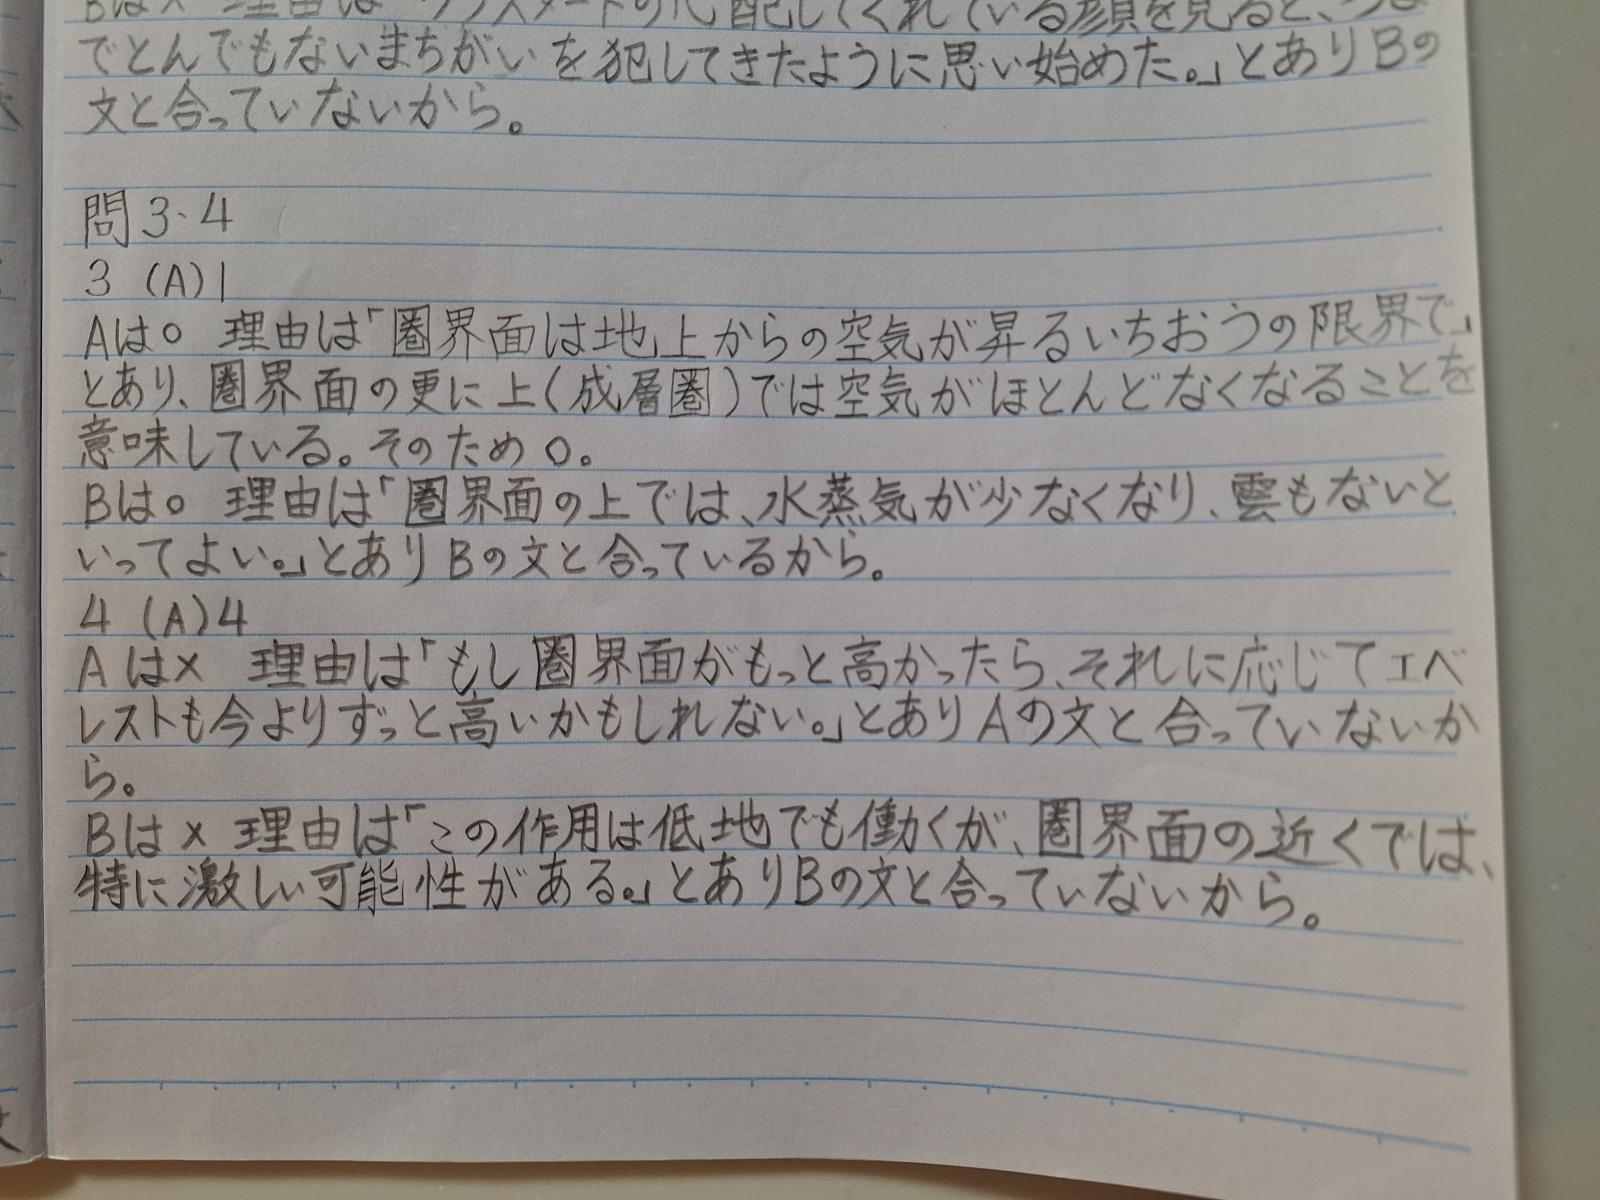 Bは× 理由は「クラスメートの心配してくれている顔を見ると、
でとんでもないまちがいを犯してきたように思い始めた。」とありBの
文と合っていないから。
問3・4
3 (A)1
Aは○ 理由は「圏界面は地上からの空気が昇るいちおうの限界で」
とあり、圏界面の更に上(成層圏)では空気がほとんどなくなることを
意味している。そのため○。
Bは○ 理由は「圏界面の上では、水蒸気が少なくなり、雲もないと
いってよい。」とありBの文と合っているから。
4 (A)4
Aは× 理由は「もし圏界面がもっと高かったら、それに応じてエベ
レストも今よりずっと高いかもしれない。」とありAの文と合っていないか
ら。
Bは× 理由は「この作用は低地でも働くが、圏界面の近くでは、
特に激しい可能性がある。」とありBの文と合っていないから。